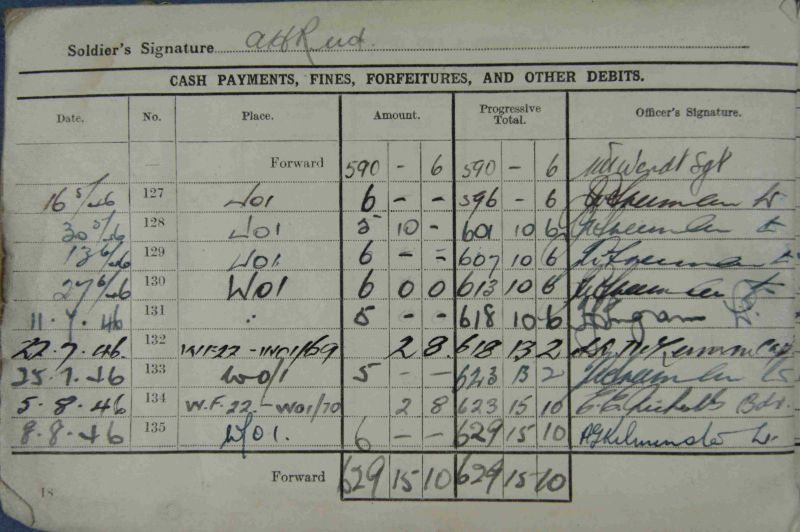 Soldier's Signature
CASH PAYMENTS, FINES, FORFEITURES, AND OTHER DEBITS.
Date. No. Place. Amount. Progressive Total. Officer's Signature.
Forward 590 - 6 590 - 6 Sgt
16 5/46 127 WO1 6 - - 596 - 6
30 5/46 128 WO1 5 10 - 601 10 6
13 6/46 129 WO1. 6 - - 607 10 6
27 6/46 130 WO1 6 0 0 613 10 6
11.7.46 131 5 - - 618 10 6
22.7.46. 132 WF22-WO1/69 2 8 618 13 2
25.7.46 133 WO/1 5 - - 623 13 2
5.8.46 134 W.F.22.-WO1/70 2 8 623 15 10
8.8.46 135 WO1. 6 - - 629 15 10
Forward 629 15 10 629 15 10
18